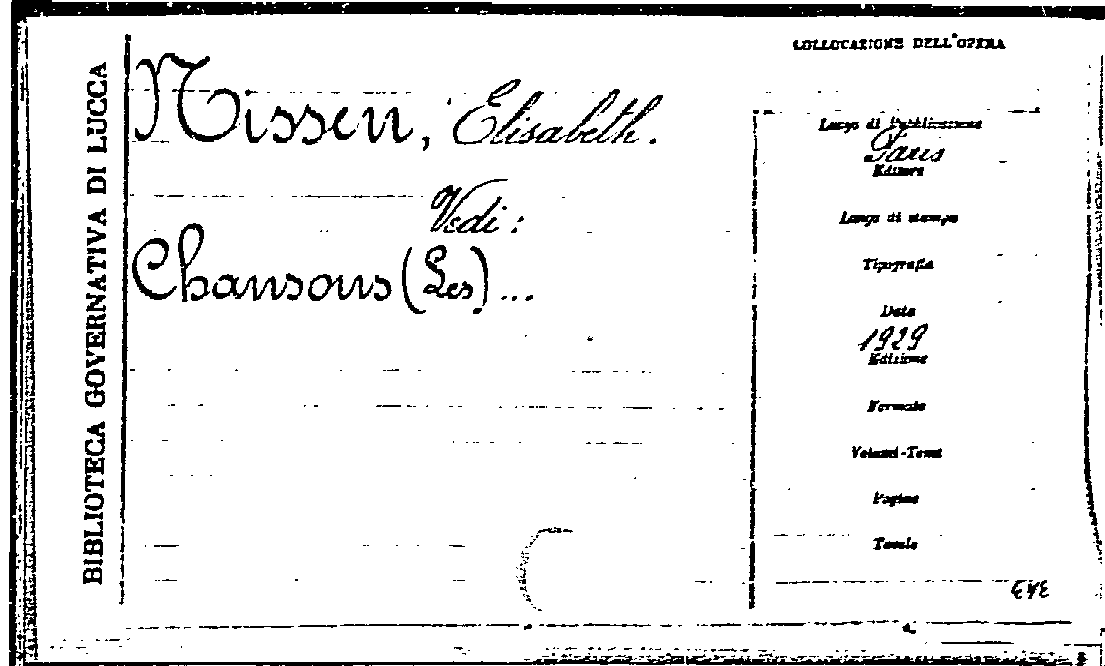 BIBLIOTECA GOVERNATIVA DI LUCCA
COLLOCAZIONE DELL'OPERA
Nissen, Elisabeth.
Vedi:
Chansons (Les)...
Luogo di Pubblicazione
Paris
Editore
Luogo di stampa
Tipografia
Data
1929
Edizione
Formato
Volumi-Tomi
Pagine
Tavole